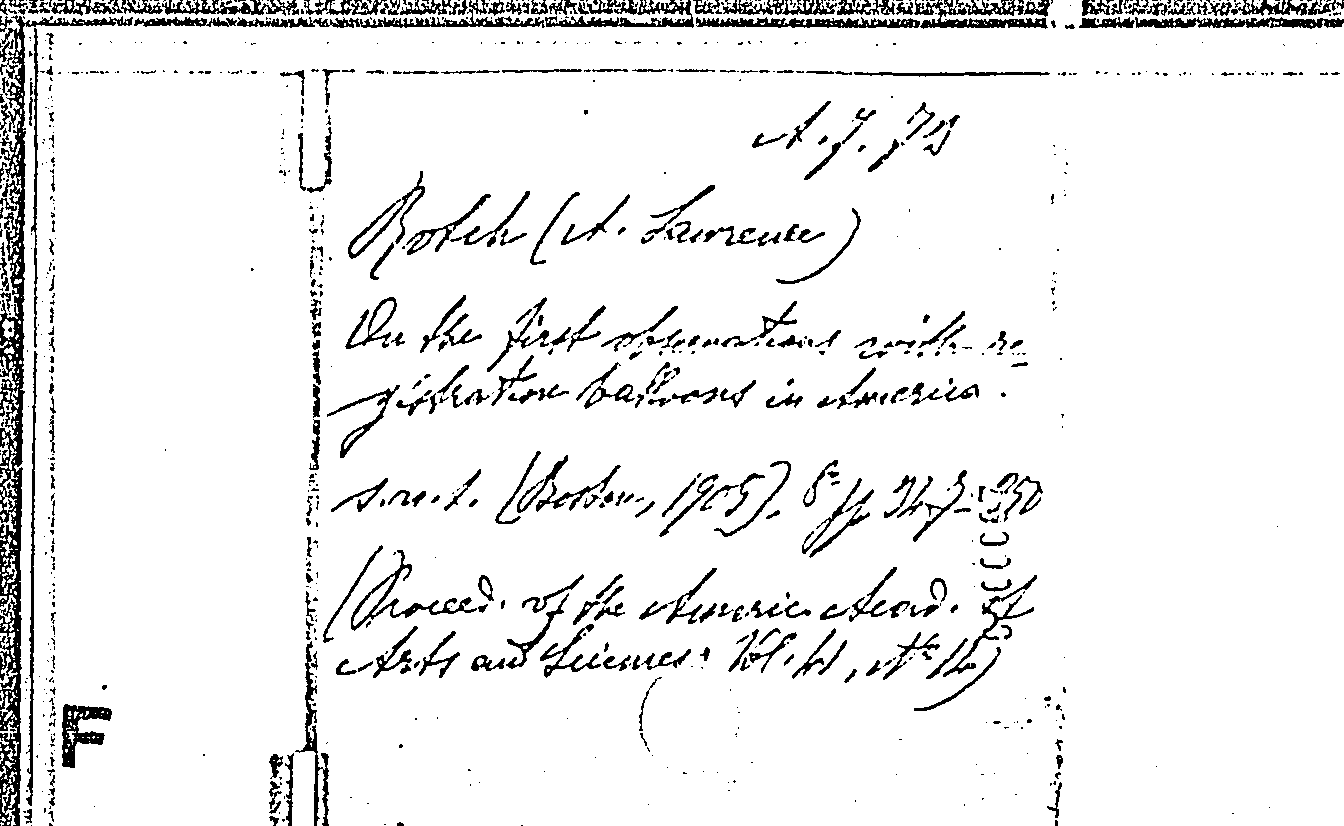 A.7.79
Rotch (A. Lawrence)
On the first observations with re-
gistration balloons in America.
s.n.t. (Boston, 1905). 8º pp. 347-350
(Proceed. of the Americ. Acad. of
Arts and Sciences: Vol. 41, Nº 14)
F